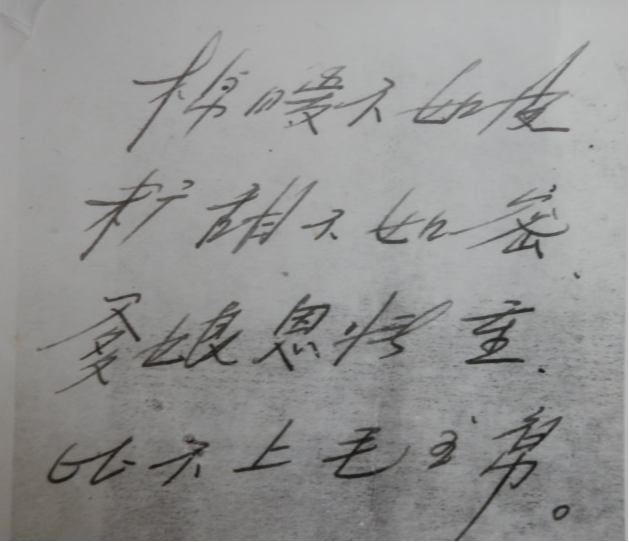 棉暖不如皮
糖甜不如蜜.
爹娘恩情重.
比不上毛主席。